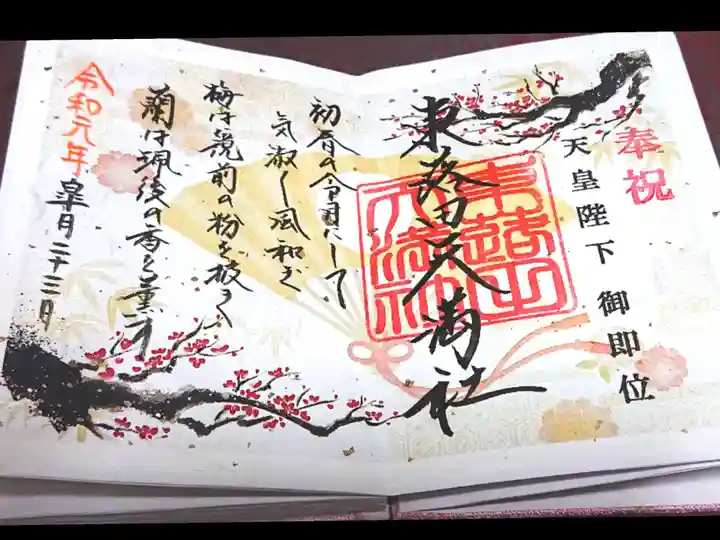 奉祝
天皇陛下 御即位
東蕗田天満社
初春の令月にして
気淑く風和ぎ
梅は鏡前の粉を披く
蘭は珮後の香を薫す
令和元年 皐月二十三日